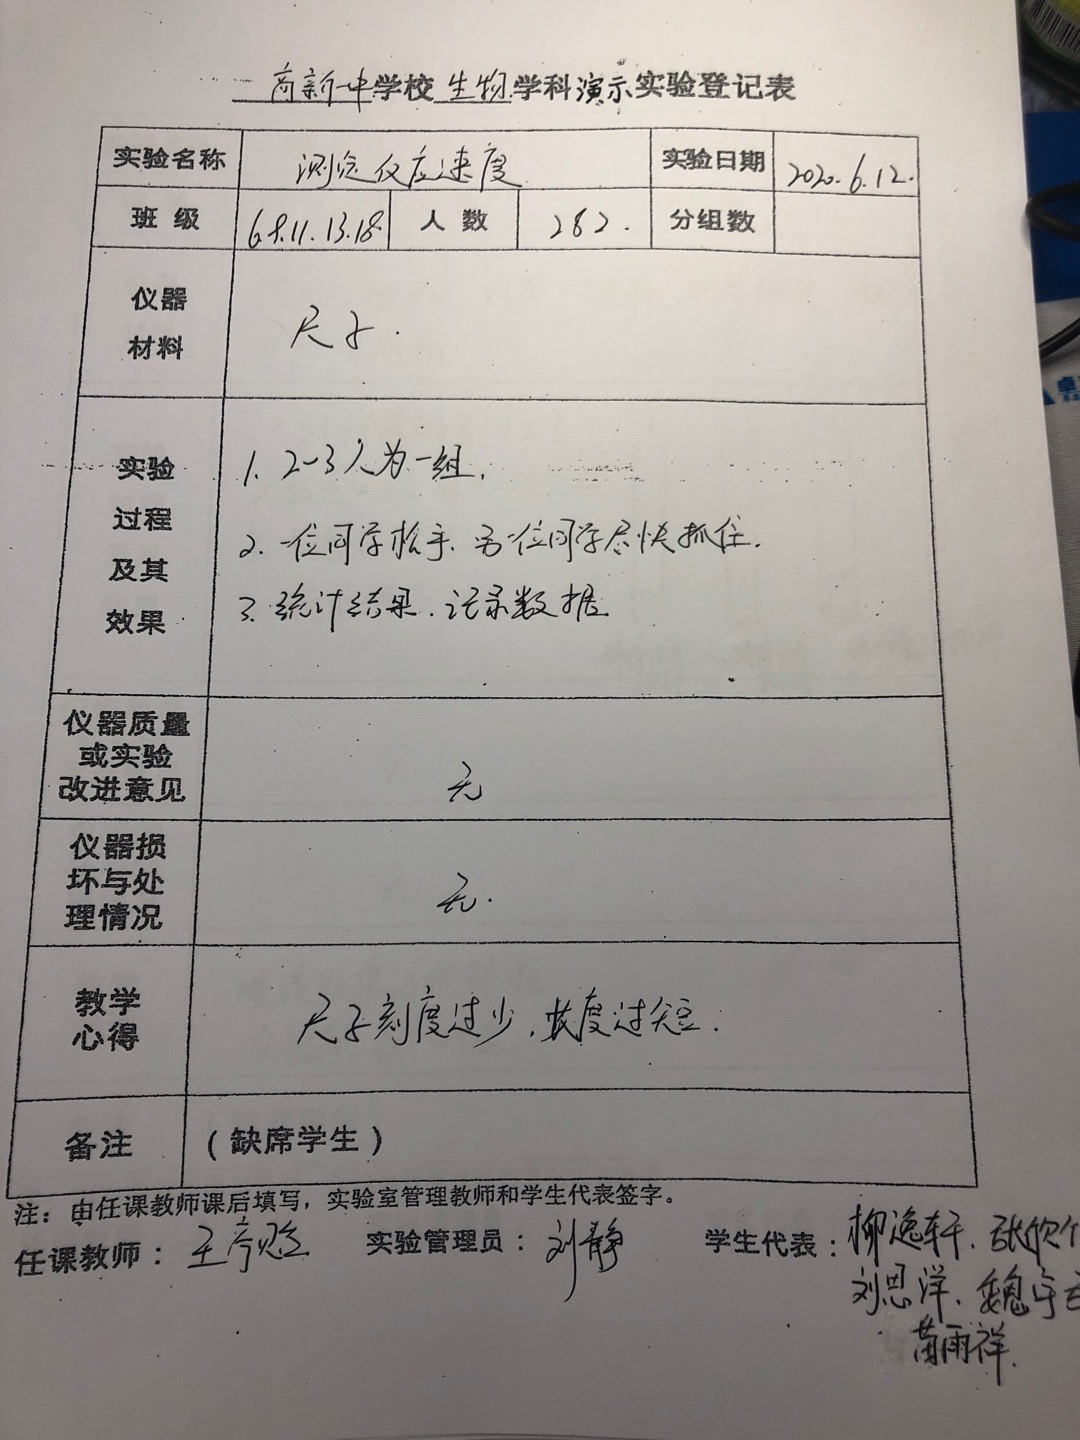 高新一中学校 生物 学科演示实验登记表
实验名称 测定反应速度 实验日期 2020.6.12.
班 级 6.8.11.13.18 人 数 282. 分组数
仪器
材料
尺子.
实验
过程
及其
效果
1. 2~3人为一组.
2. 一位同学松手.另一位同学尽快抓住.
3. 统计结果.记录数据
仪器质量
或实验
改进意见
无
仪器损
坏与处
理情况
无.
教学
心得
尺子刻度过少.长度过短.
备注 (缺席学生)
注：由任课教师课后填写，实验室管理教师和学生代表签字。
任课教师： 实验管理员：刘静 学生代表：柳逸轩.张欣
刘思洋.魏宇
苗雨祥.